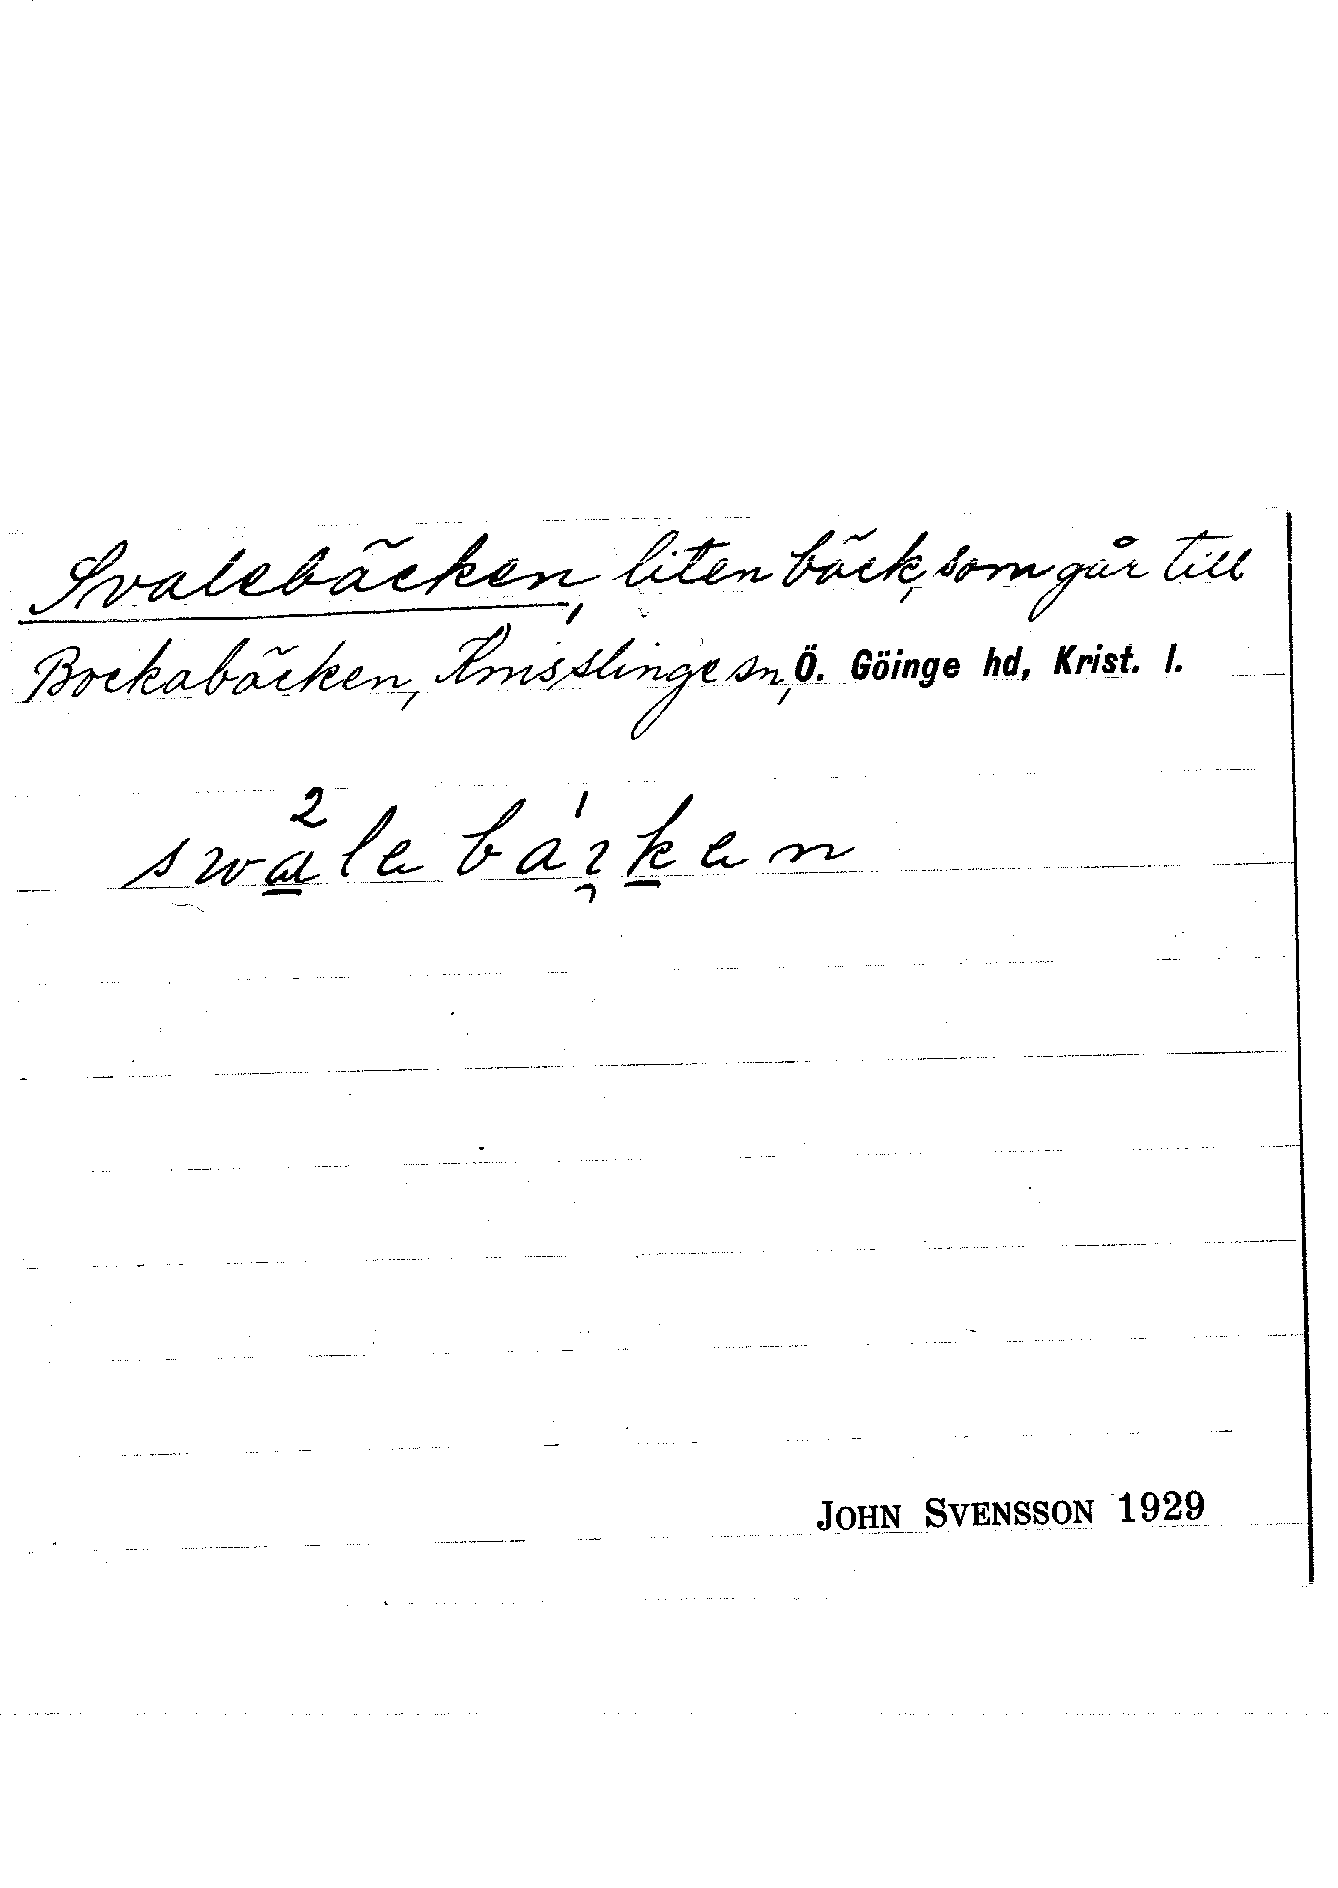 Svalebäcken, liten bäck, som går till
Bockabäcken, Knisslinge sn, Ö. Göinge hd, Krist. l.
JOHN SVENSSON 1929